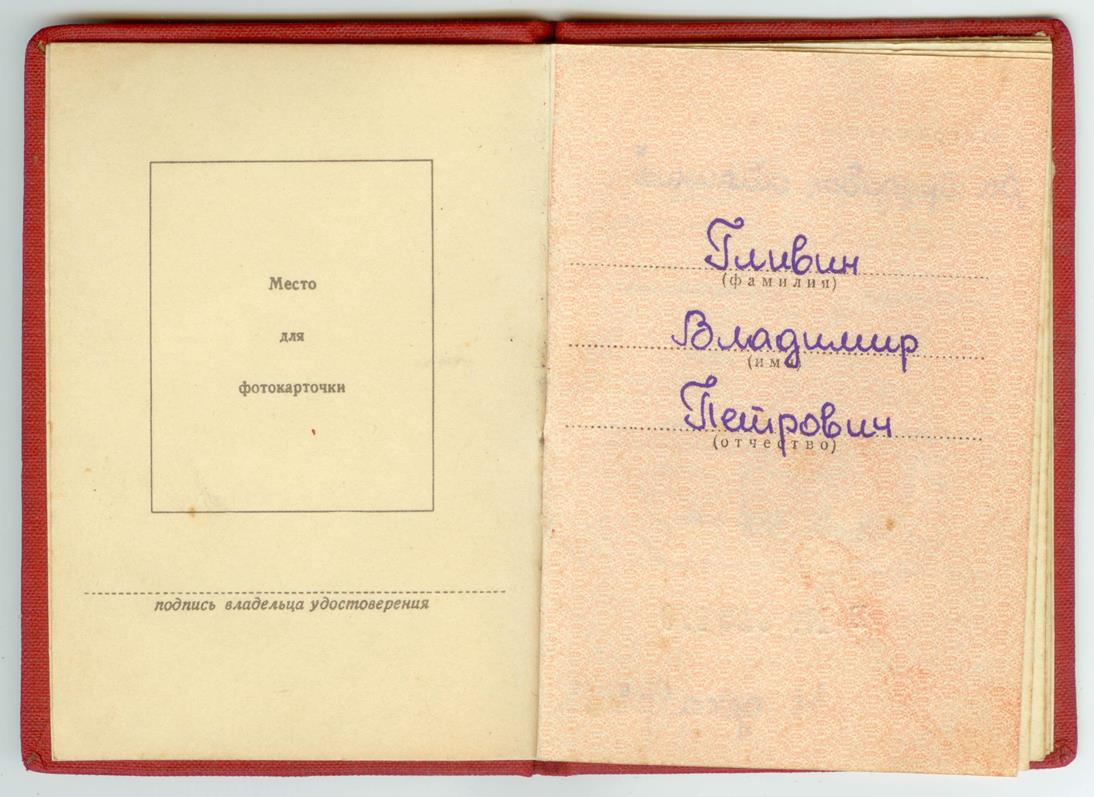 Место
для
фотокарточки
подпись владельца удостоверения
Гливин
(фамилия)
Владимир
(имя)
Петрович
(отчество)